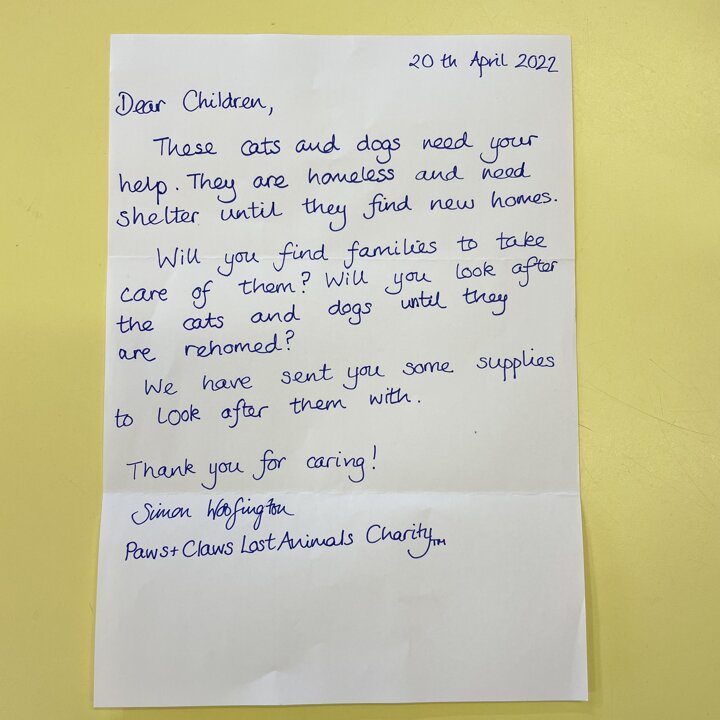 20 th April 2022
Dear Children,
These cats and dogs need your
help. They are homeless and need
shelter until they find new homes.
Will you find families to take
care of them? Will you look after
the cats and dogs until they
are rehomed?
We have sent you some supplies
to look after them with.
Thank you for caring!
Simon Woofington
Paws+Claws Lost Animals Charity™